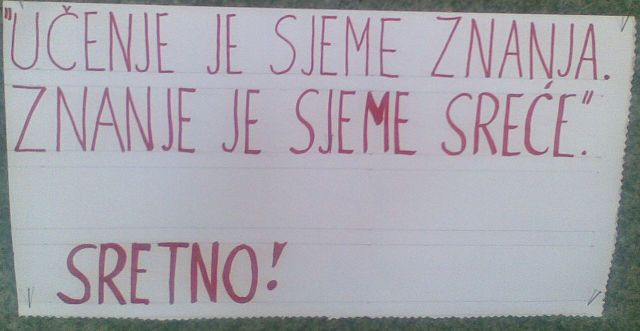 "UČENJE JE SJEME ZNANJA.
ZNANJE JE SJEME SREĆE".
SRETNO!